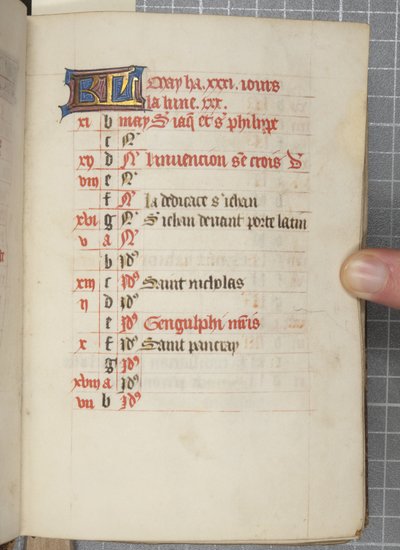 KL May ha .xxxi. iours
la lune .xxx.
xi b may S iaq̃ et s' philipe
c N
xv d N l'invencion s'e crois D
viii e N
f N la dedicace s' iehan
xvi g N S iehan devant porte latin
v a N
b Id9
xiii c Id9 Saint nicholas
ii d Id9
e Id9 Gengulphi m̃ris
x f Id9 Saint pancray
g Id9
xviii a Id9
vii b Id9